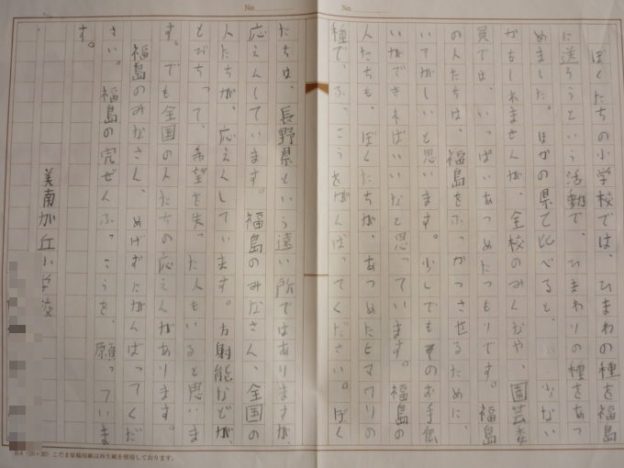 No.
No.
ぼくたちの小学校では、ひまわの種を福島
に送ろうという活動で、ひまわりの種をあつ
めました。ほかの県て比べると、少ない
かもしれませんが、全校のみんなや、園芸委
員では、いっぱいあつめたつもりです。福島
の人たちは、福島をふっかつさせるために、
いそがしいと思います。少しでもそのお手伝
いができればいいなと思っています。福島の
人たちも、ぼくたちが、あつめたヒマワリの
種で、ふっこうをがんばってください。ぼく
たちは、長野県という遠い所ではありますが、
応えんしています。福島のみなさん、全国の
人たちが、応えんしています。方射能などが、
とびちって、希望を失った人もいると思いま
す。でも全国の人たちの応えんがあります。
福島のみなさん、めげずにがんばってくだ
さい。福島の完ぜんふっこうを、願っていま
す。
美南が丘小学校